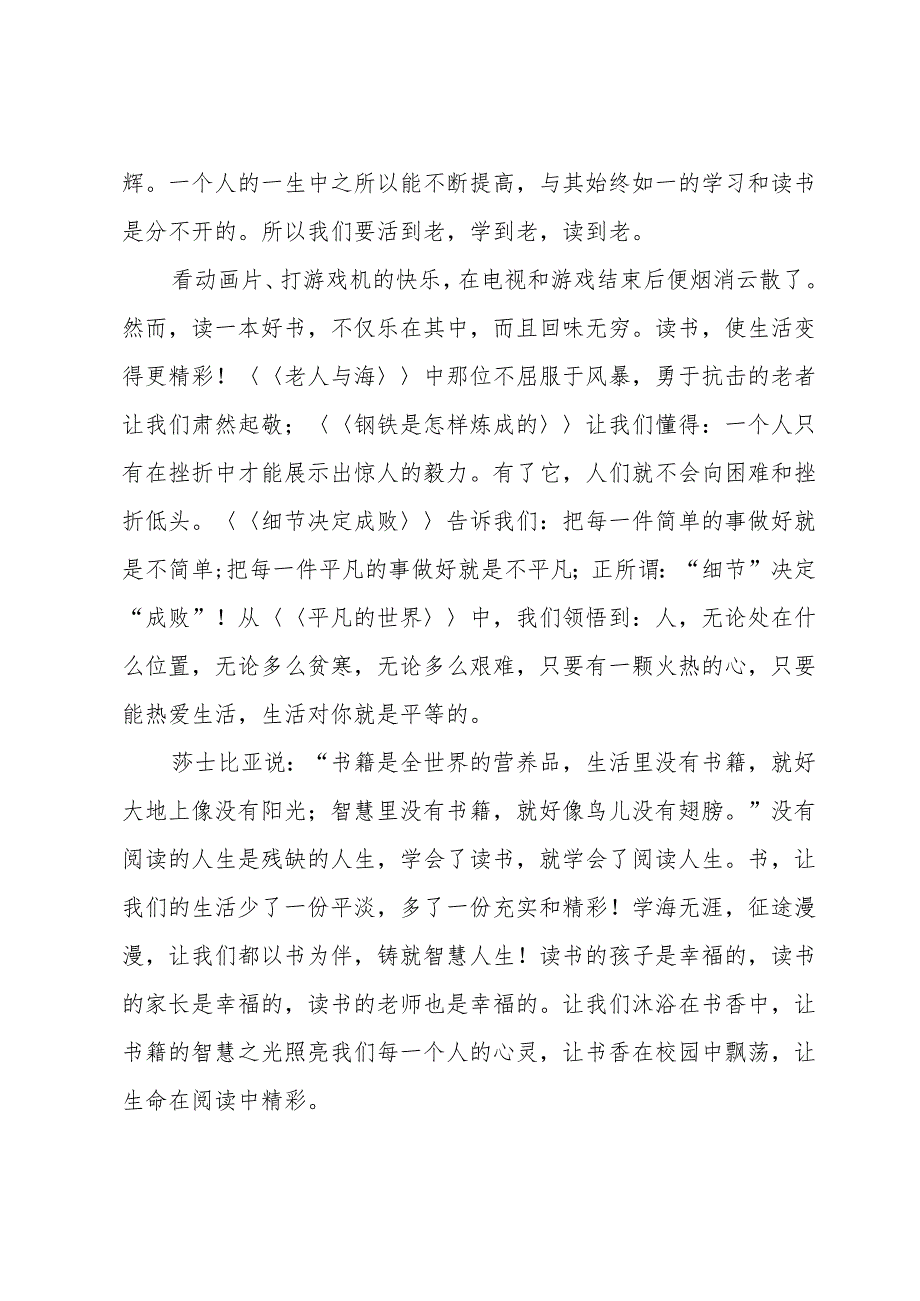 辉。一个人的一生中之所以能不断提高，与其始终如一的学习和读书
是分不开的。所以我们要活到老，学到老，读到老。
看动画片、打游戏机的快乐，在电视和游戏结束后便烟消云散了。
然而，读一本好书，不仅乐在其中，而且回味无穷。读书，使生活变
得更精彩！〈〈老人与海〉〉中那位不屈服于风暴，勇于抗击的老者
让我们肃然起敬；〈〈钢铁是怎样炼成的〉〉让我们懂得：一个人只
有在挫折中才能展示出惊人的毅力。有了它，人们就不会向困难和挫
折低头。〈〈细节决定成败〉〉告诉我们：把每一件简单的事做好就
是不简单;把每一件平凡的事做好就是不平凡；正所谓：“细节”决定
“成败”！从〈〈平凡的世界〉〉中，我们领悟到：人，无论处在什
么位置，无论多么贫寒，无论多么艰难，只要有一颗火热的心，只要
能热爱生活，生活对你就是平等的。
莎士比亚说：“书籍是全世界的营养品，生活里没有书籍，就好
大地上像没有阳光；智慧里没有书籍，就好像鸟儿没有翅膀。”没有
阅读的人生是残缺的人生，学会了读书，就学会了阅读人生。书，让
我们的生活少了一份平淡，多了一份充实和精彩！学海无涯，征途漫
漫，让我们都以书为伴，铸就智慧人生！读书的孩子是幸福的，读书
的家长是幸福的，读书的老师也是幸福的。让我们沐浴在书香中，让
书籍的智慧之光照亮我们每一个人的心灵，让书香在校园中飘荡，让
生命在阅读中精彩。